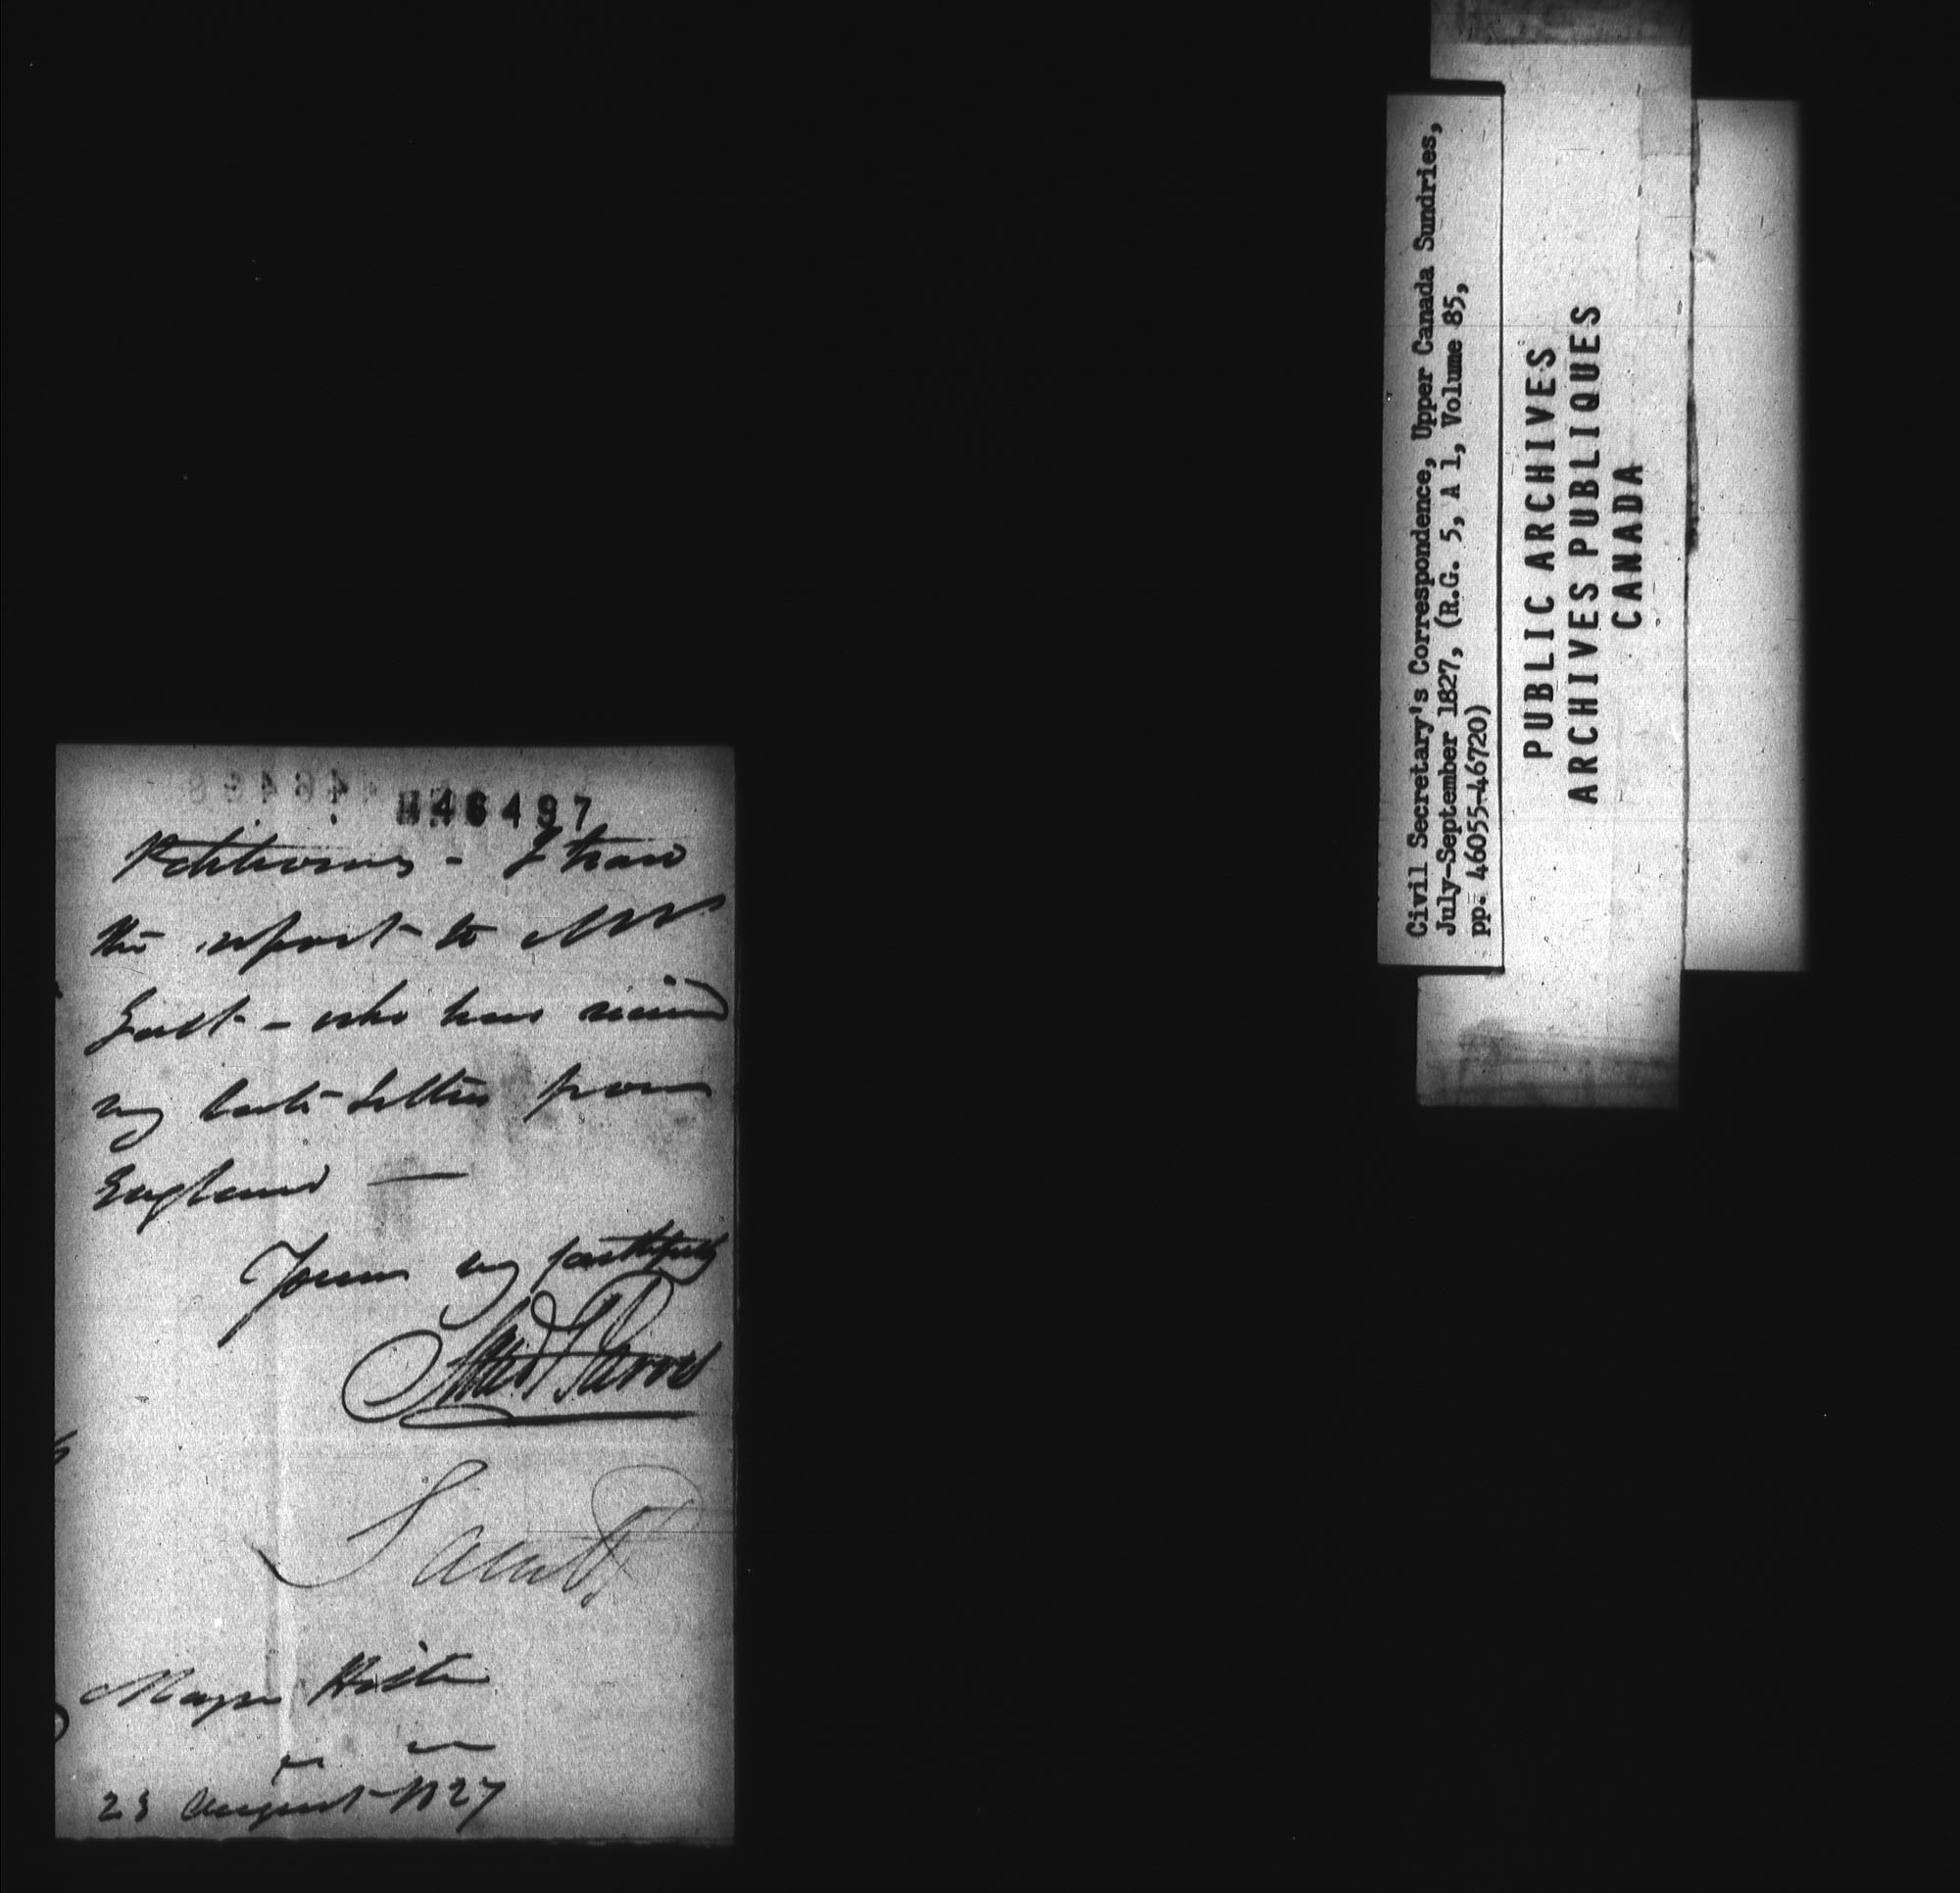 46497
Petitions - I have
the report to Mr
Galt - who has received
my last letters from
England —
Yours very faithfully
Major Hillier
23 August 1827
Civil Secretary's Correspondence, Upper Canada Sundries,
July-September 1827, (R.G. 5, A 1, Volume 85,
pp. 46055-46720)
PUBLIC ARCHIVES
ARCHIVES PUBLIQUES
CANADA